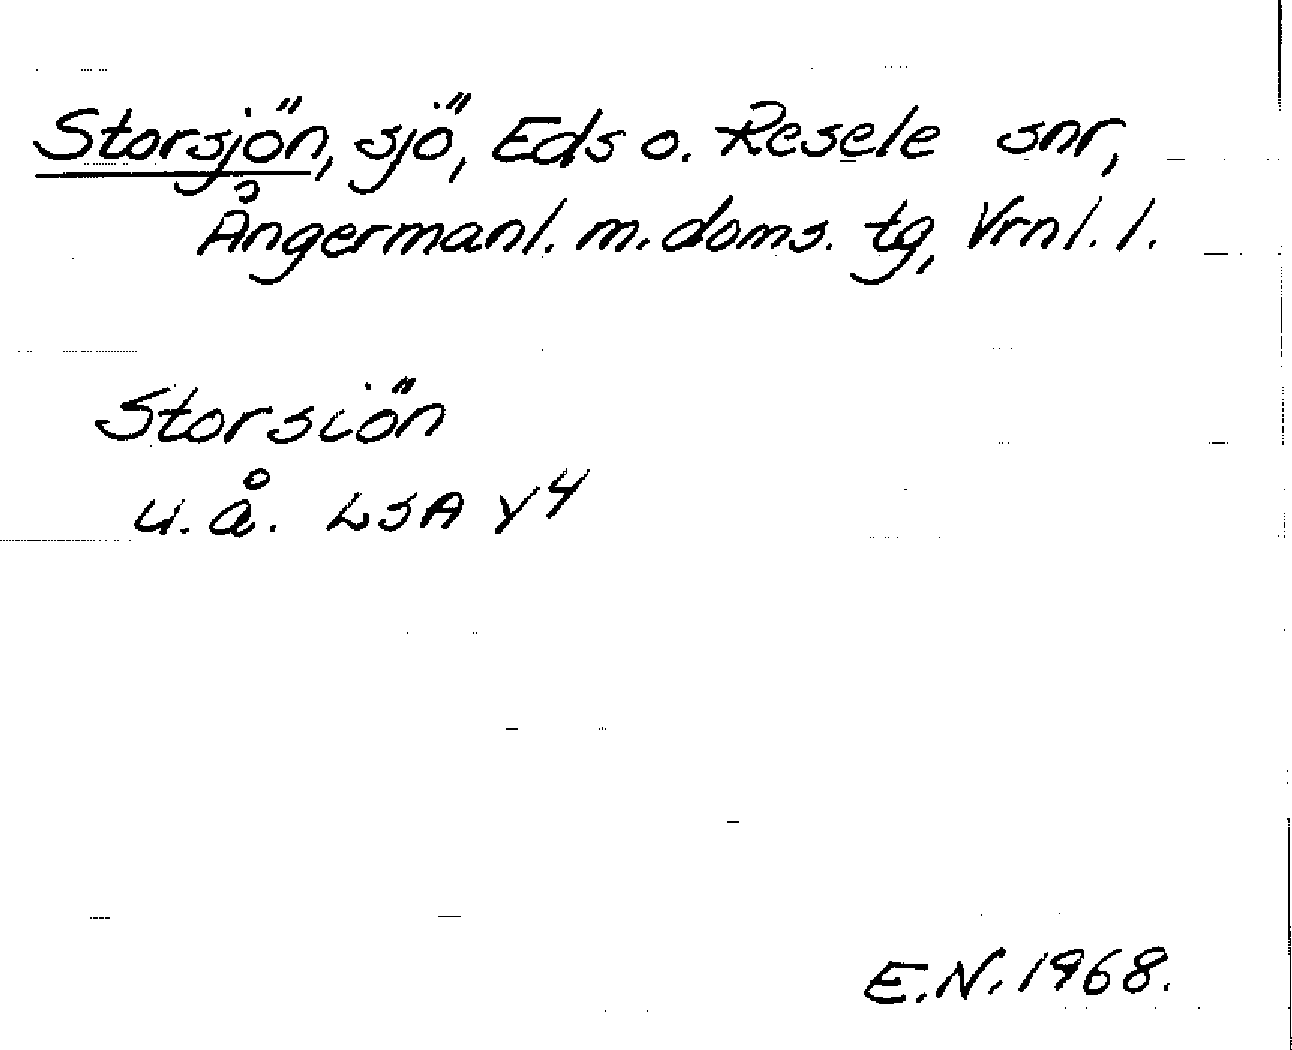 Storsjön, sjö, Eds o. Resele snr,
Ångermanl. m. doms. tg, Vrnl. l.
Storsiön
u. å. LSA Y4
E.N. 1968.